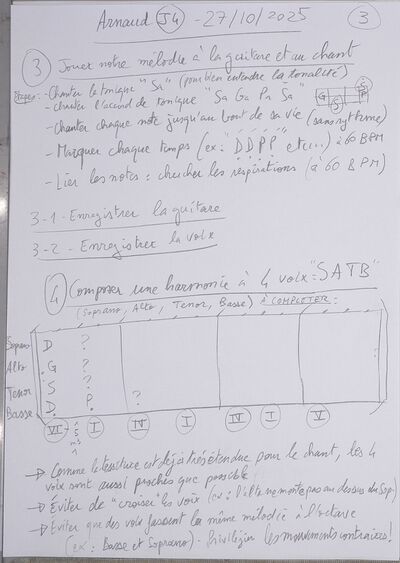 Arnaud J4 - 27/10/2025 3
3 Jouer notre mélodie à la guitare et au chant
Étapes: - Chanter le tonique "Sa" (pour bien entendre la tonalité)
- Chanter l'accord de tonique "Sa Ga Pa Sa"
G S P S
- Chanter chaque note jusqu'au bout de sa vie (sans rythme)
- Marquer chaque temps (ex: "DDPP" etc...) à 60 BPM
- Lier les notes : chercher les respirations (à 60 BPM)
3-1- Enregistrer la guitare
3-2- Enregistrer la voix
4 Composer une harmonie à 4 voix "SATB"
(Soprano, Alto, Tenor, Basse) À COMPLETER:
Soprano D ?
Alto G ?
Tenor S ?
Basse D P ?
VI- I IV I IV I V
→ Comme la tessiture est déjà très étendue pour le chant, les 4
voix sont aussi proches que possible!
→ Éviter de "croiser" les voix (ex: l'alto ne monte pas au dessus du Sop-)
→ Éviter que des voix fassent la même mélodie à l'octave
(ex: Basse et Soprano) - Privilégier les mouvements contraires!